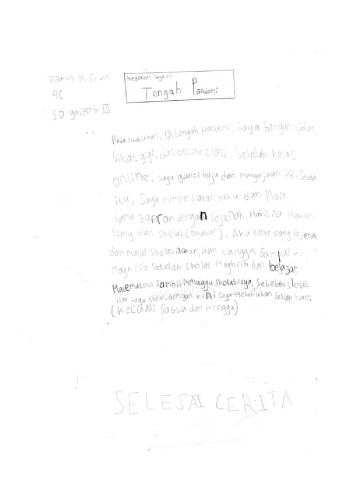 4C
SD
Kegiatan Saya di
Tengah Pandemi
Pada suatu hari, Di tengah pandemi, saya bangun tidur,
Sikat gigi, dan online class. Setelah kelas
online, saya ganti baju dan mengerjakan PR. Setelah
itu, Saya mempersiapkan buku dan
dengan Sejenak. Habis itu makan
Siang dan sholat (Dzuhur), Aku tidur siang
dan mulai sholat ashar, dan tunggu Sampai
Maghrib Setelah sholat Maghrib dan belajar
Matematika sambil menunggu sholat isya, Setelah sholat
isya saya tidur. dengan ini saya melakukan setiap hari,
(kecuali Sabtu dan minggu)
SELESAI CERITA